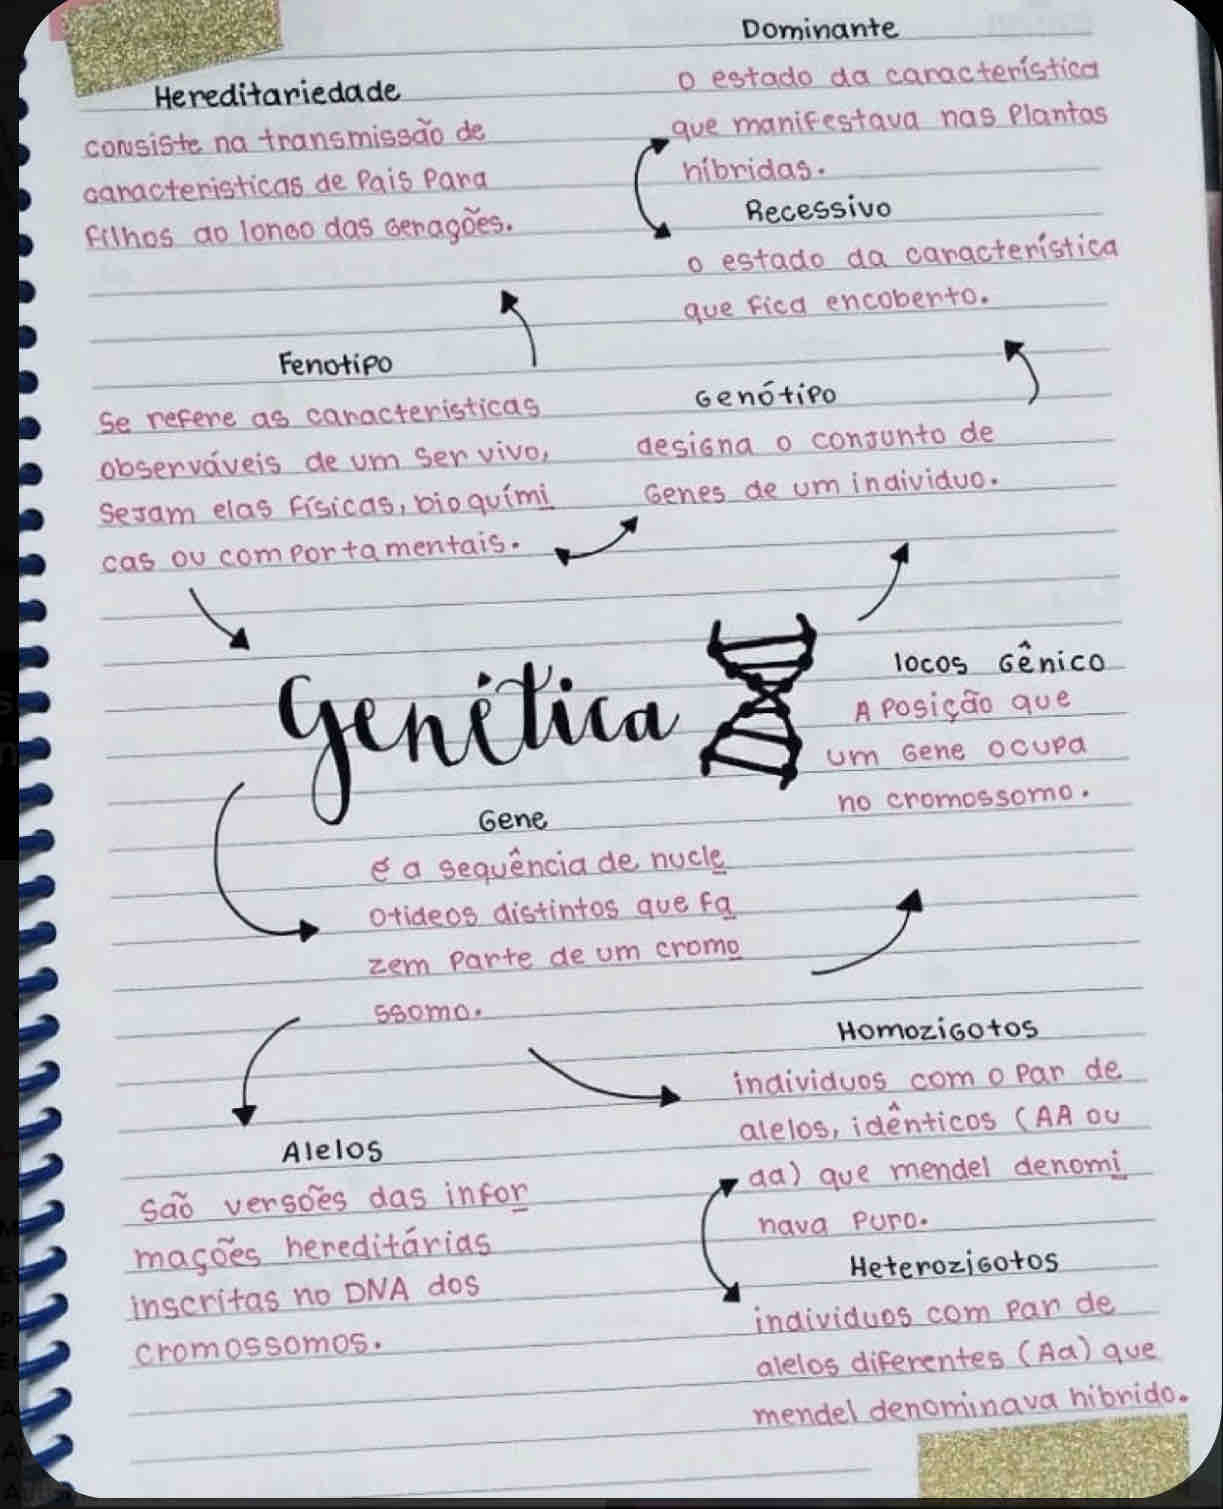 Hereditariedade
consiste na transmissão de
caracteristicas de Pais Para
filhos ao longo das gerações.
Dominante
o estado da característica
que manifestava nas Plantas
híbridas.
Recessivo
o estado da característica
que fica encoberto.
Fenotipo
Se refere as caracteristicas
observáveis de um ser vivo,
Sejam elas físicas, bioquími
cas ou comportamentais.
Genótipo
designa o conjunto de
Genes de um individuo.
Genética
locos Gênico
A Posição que
um Gene ocupa
no cromossomo.
Gene
é a sequência de nucle
otideos distintos que fa
zem Parte de um cromo
ssomo.
Alelos
São versões das infor
mações hereditárias
inscritas no DNA dos
cromossomos.
Homozigotos
individuos com o Par de
alelos, idênticos (AA ou
aa) que mendel denomi
nava Puro.
Heterozigotos
individuos com Par de
alelos diferentes (Aa) que
mendel denominava hibrido.